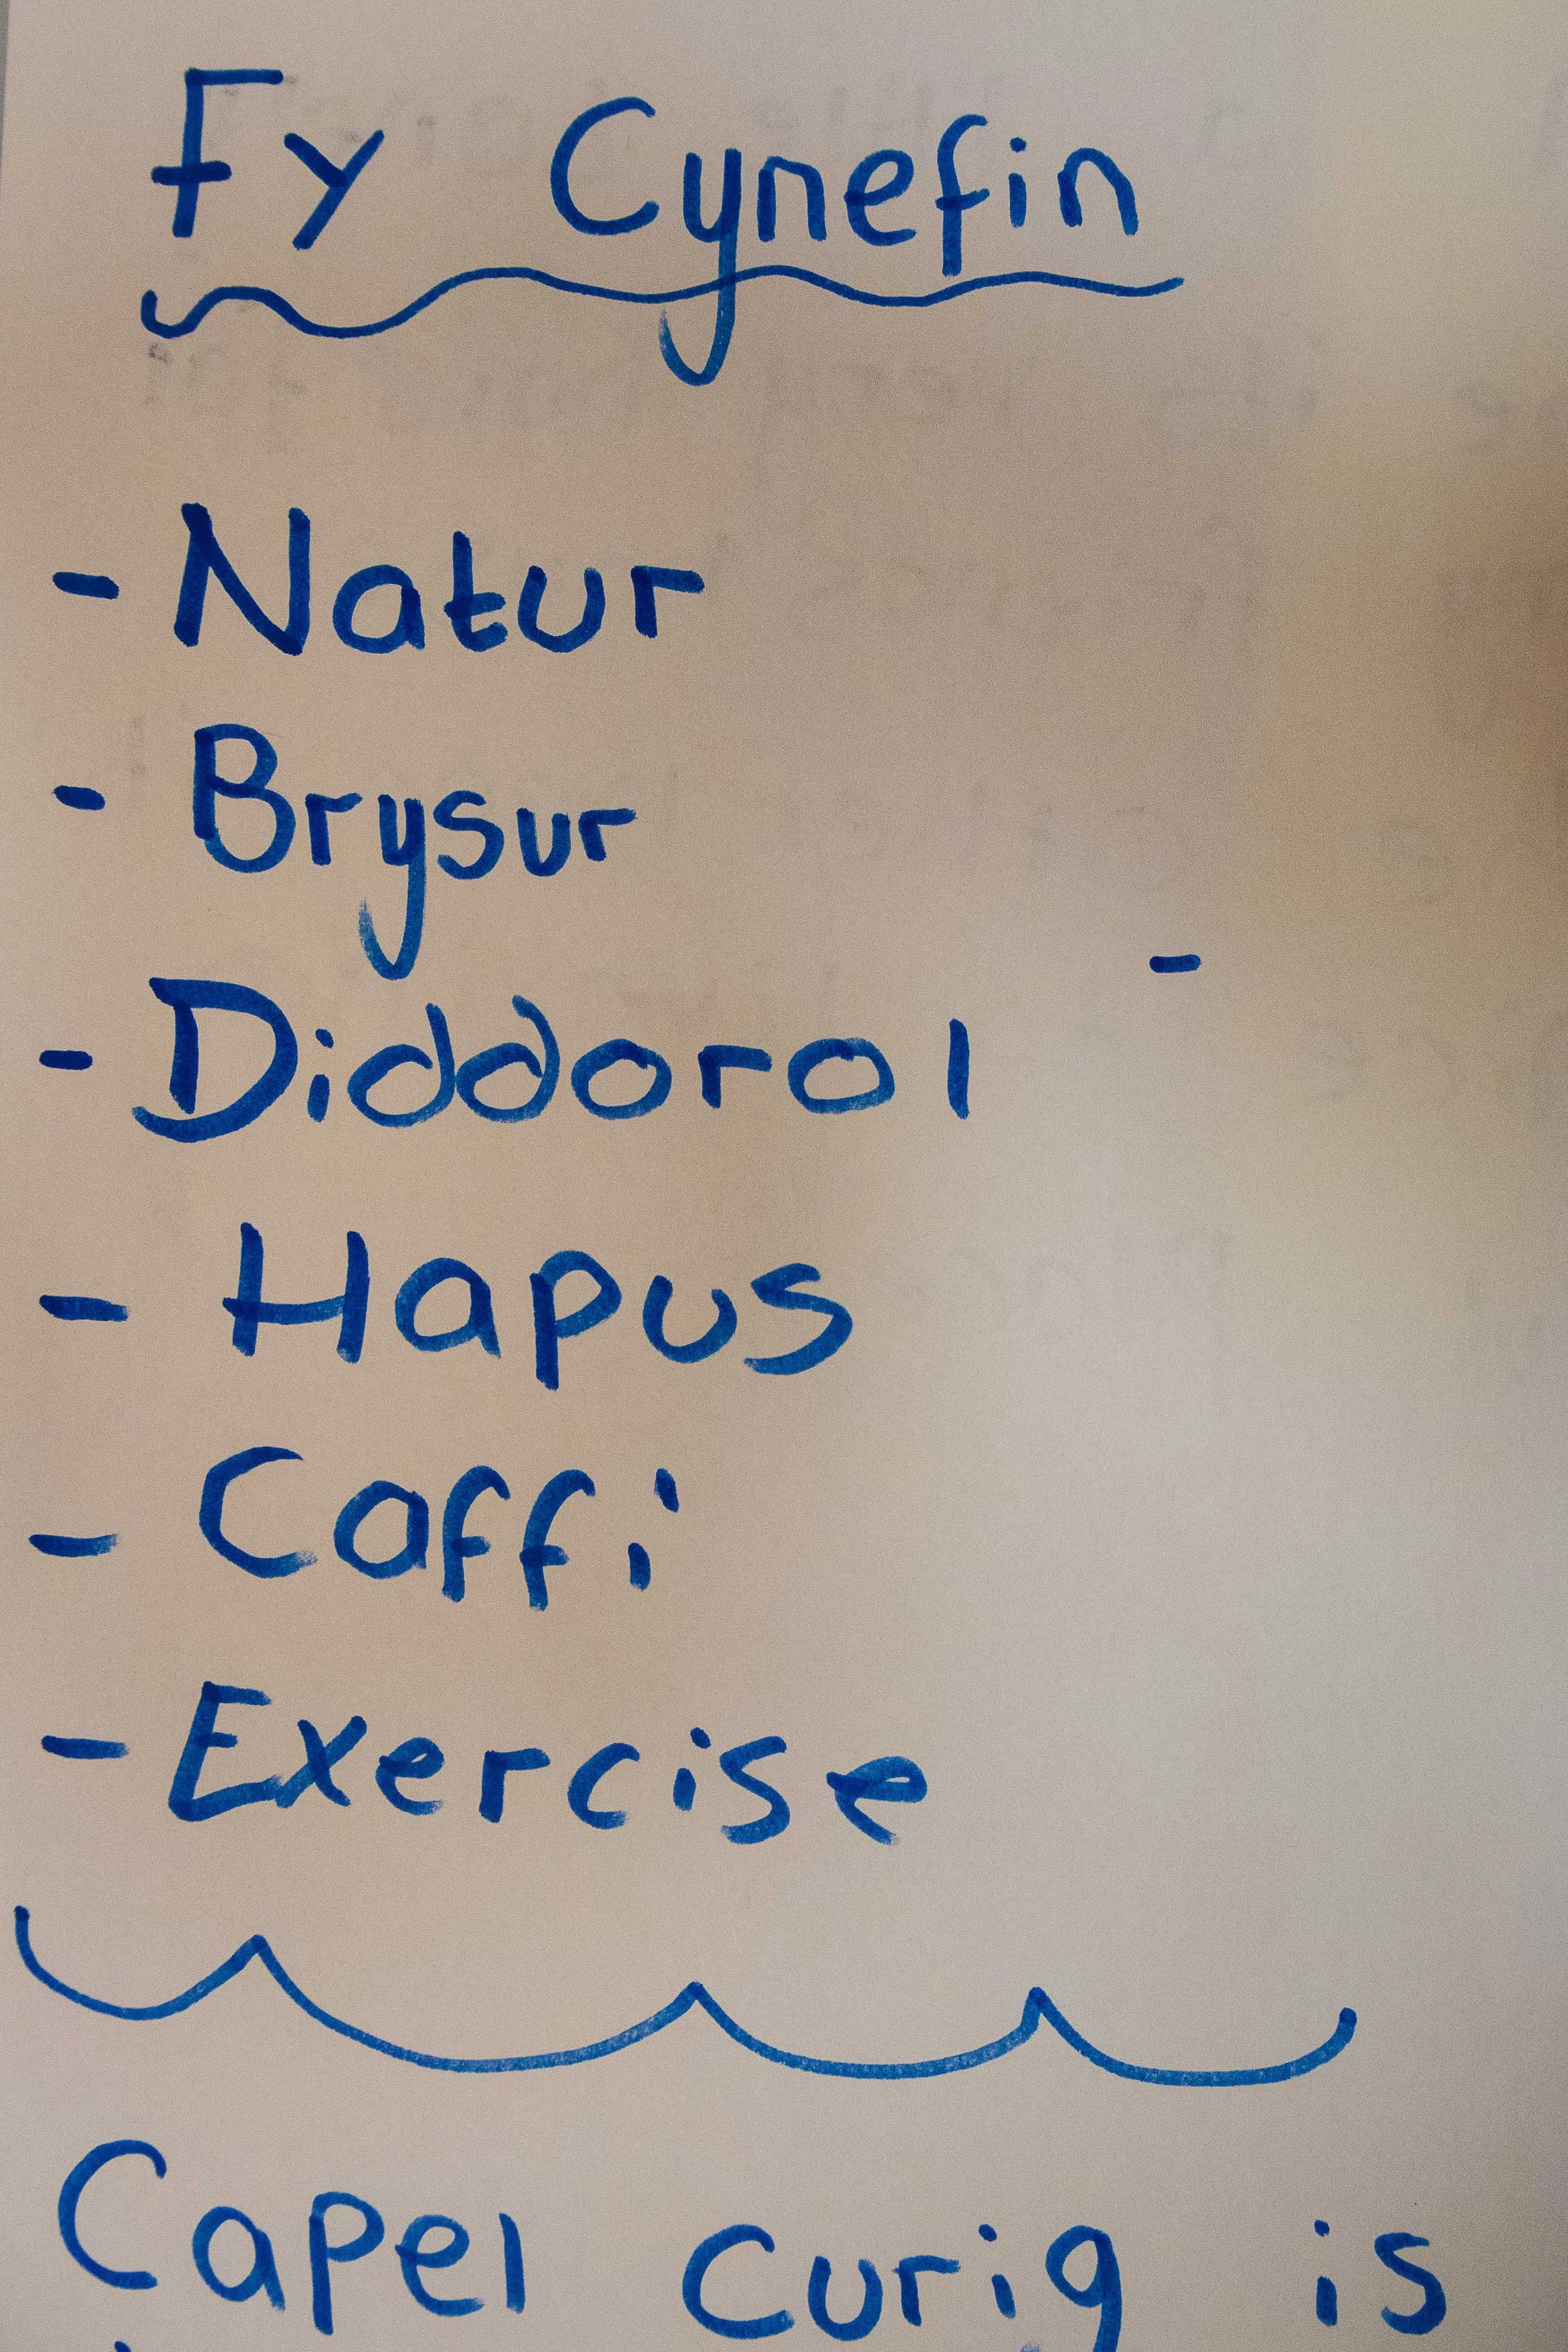 Fy Cynefin
- Natur
- Brysur
-
- Diddorol
- Hapus
- Caffi
- Exercise
Capel Curig is